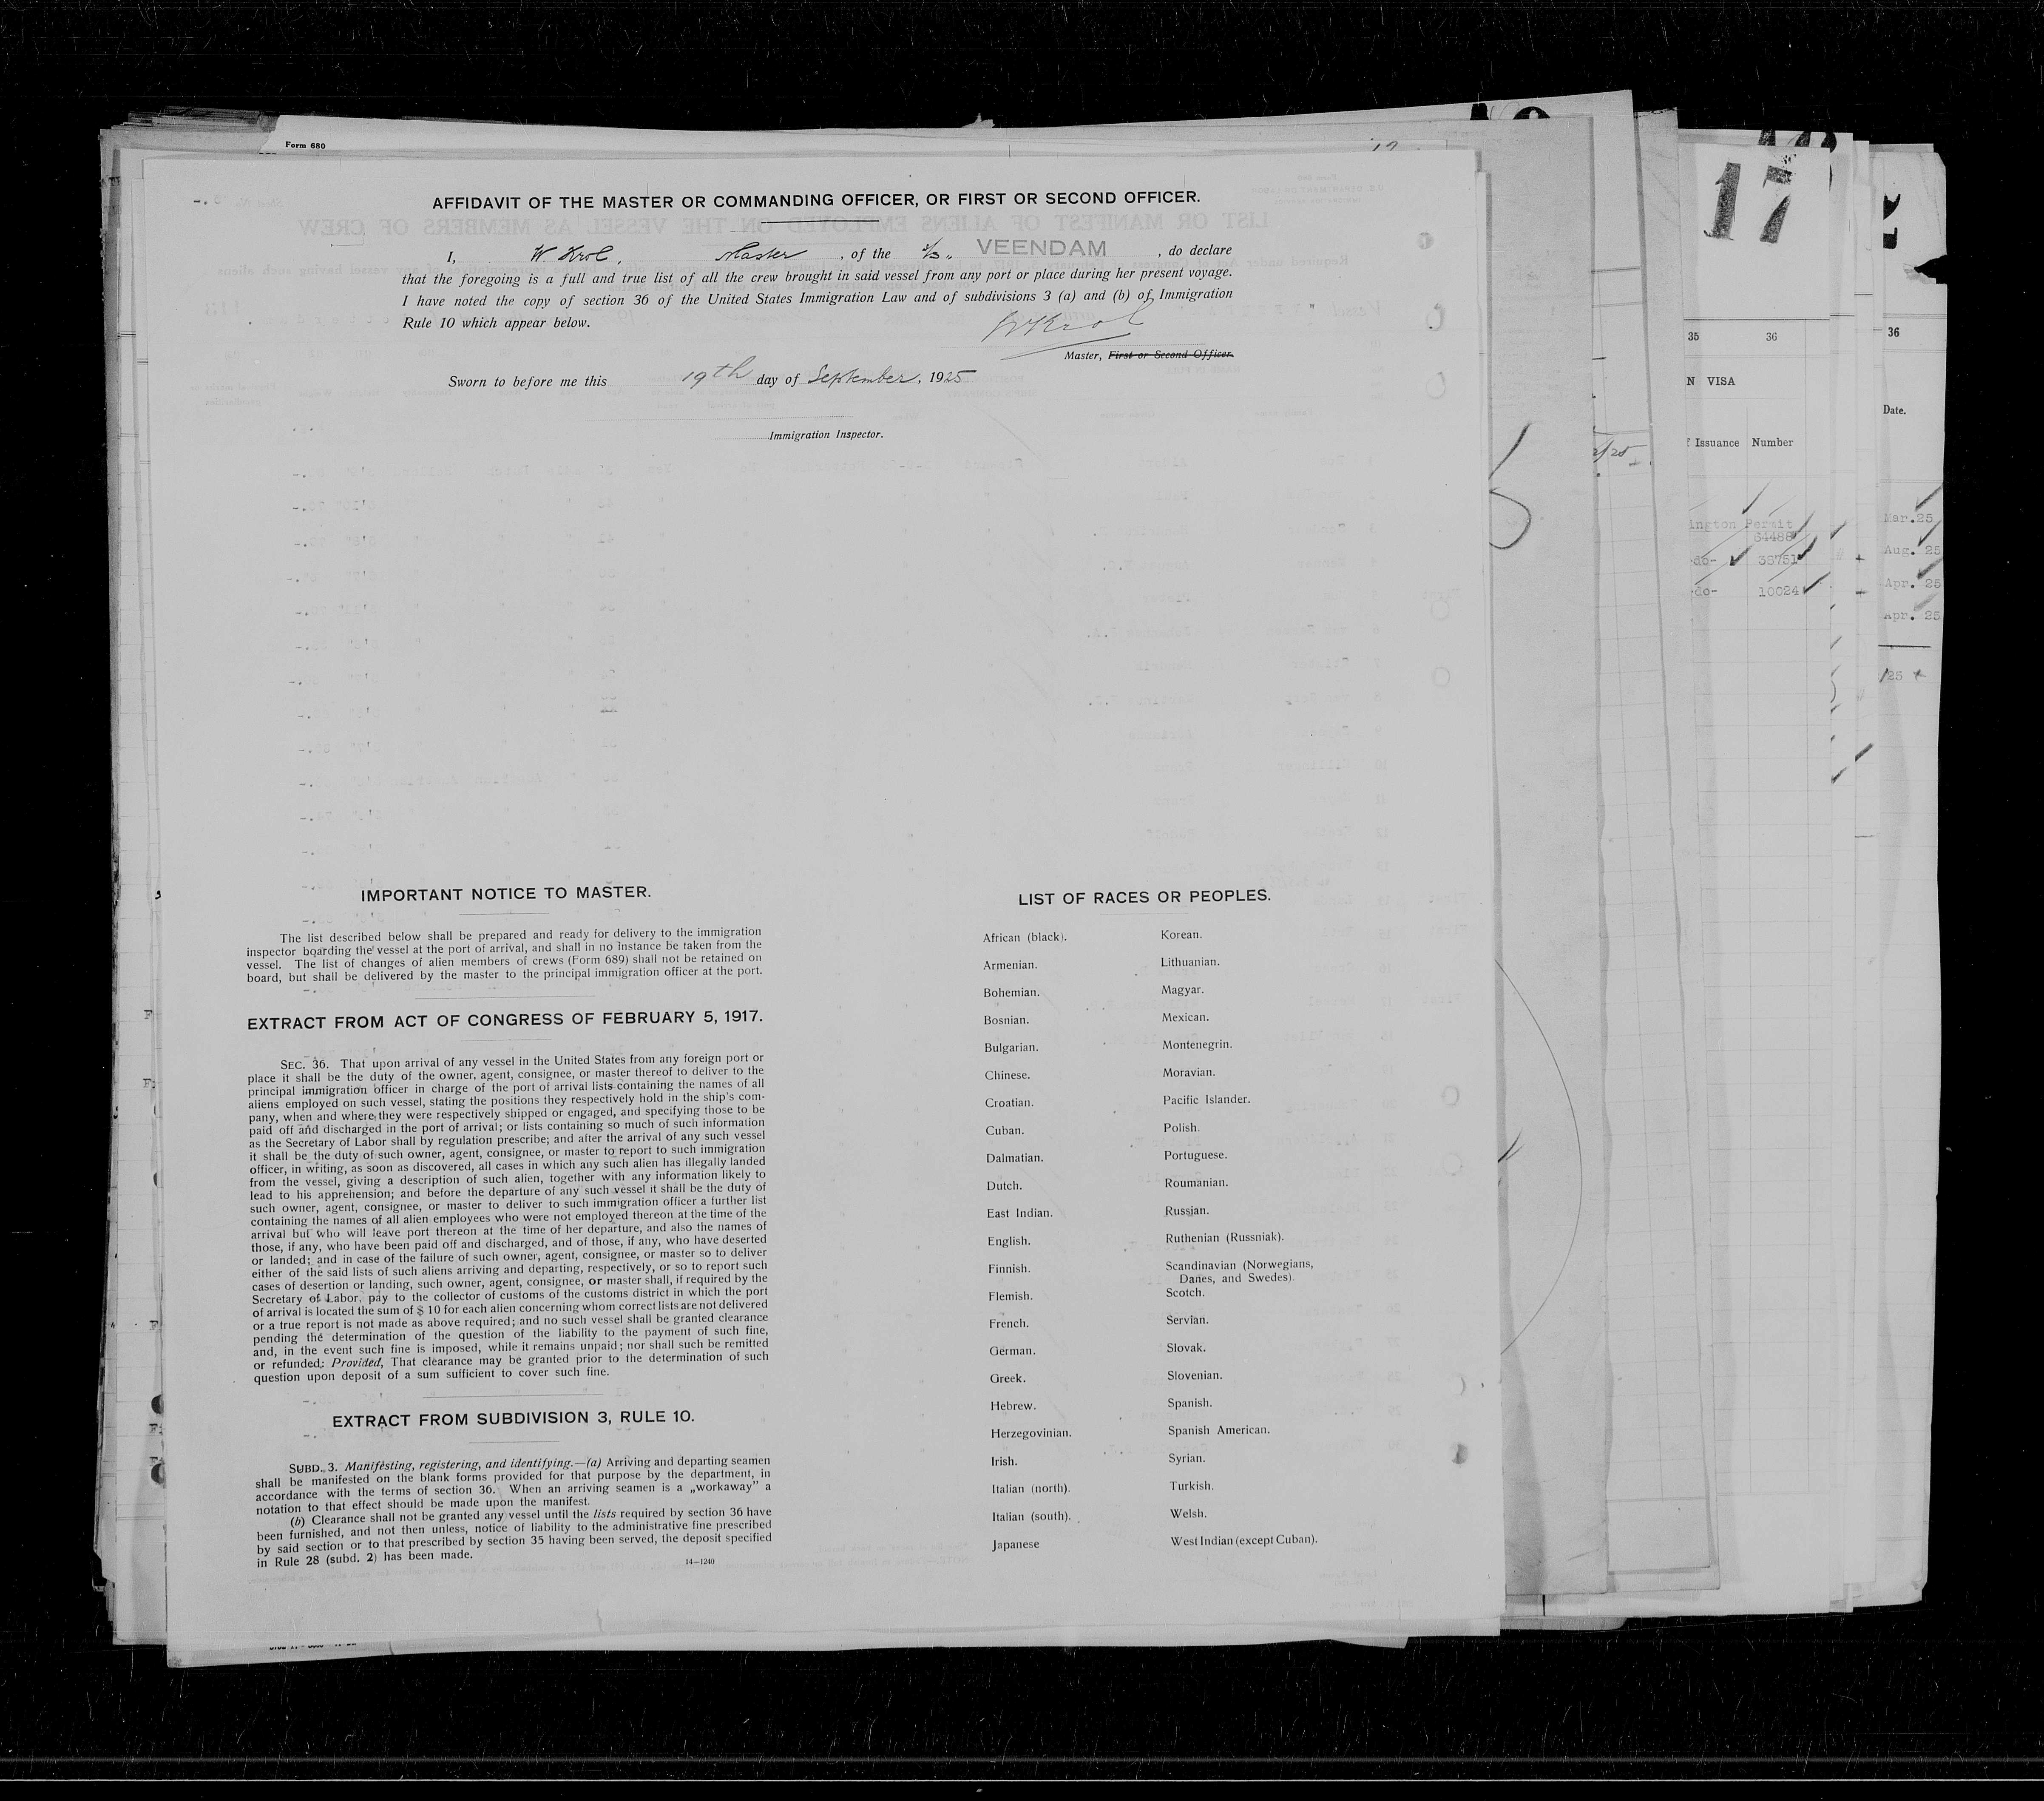 Form 680
17
AFFIDAVIT OF THE MASTER OR COMMANDING OFFICER, OR FIRST OR SECOND OFFICER.
I, W Krol, Master, of the S/S „ VEENDAM , do declare
that the foregoing is a full and true list of all the crew brought in said vessel from any port or place during her present voyage.
I have noted the copy of section 36 of the United States Immigration Law and of subdivisions 3 (a) and (b) of Immigration
Rule 10 which appear below.
WKrol
Master, First or Second Officer.
Sworn to before me this 19th day of September, 1925
Immigration Inspector.
IMPORTANT NOTICE TO MASTER.
The list described below shall be prepared and ready for delivery to the immigration
inspector boarding the vessel at the port of arrival, and shall in no instance be taken from the
vessel. The list of changes of alien members of crews (Form 689) shall not be retained on
board, but shall be delivered by the master to the principal immigration officer at the port.
EXTRACT FROM ACT OF CONGRESS OF FEBRUARY 5, 1917.
SEC. 36. That upon arrival of any vessel in the United States from any foreign port or
place it shall be the duty of the owner, agent, consignee, or master thereof to deliver to the
principal immigration officer in charge of the port of arrival lists containing the names of all
aliens employed on such vessel, stating the positions they respectively hold in the ship's com-
pany, when and where they were respectively shipped or engaged, and specifying those to be
paid off and discharged in the port of arrival; or lists containing so much of such information
as the Secretary of Labor shall by regulation prescribe; and after the arrival of any such vessel
it shall be the duty of such owner, agent, consignee, or master to report to such immigration
officer, in writing, as soon as discovered, all cases in which any such alien has illegally landed
from the vessel, giving a description of such alien, together with any information likely to
lead to his apprehension; and before the departure of any such vessel it shall be the duty of
such owner, agent, consignee, or master to deliver to such immigration officer a further list
containing the names of all alien employees who were not employed thereon at the time of the
arrival but who will leave port thereon at the time of her departure, and also the names of
those, if any, who have been paid off and discharged, and of those, if any, who have deserted
or landed; and in case of the failure of such owner, agent, consignee, or master so to deliver
either of the said lists of such aliens arriving and departing, respectively, or so to report such
cases of desertion or landing, such owner, agent, consignee, or master shall, if required by the
Secretary of Labor, pay to the collector of customs of the customs district in which the port
of arrival is located the sum of $ 10 for each alien concerning whom correct lists are not delivered
or a true report is not made as above required; and no such vessel shall be granted clearance
pending the determination of the question of the liability to the payment of such fine,
and, in the event such fine is imposed, while it remains unpaid; nor shall such be remitted
or refunded: Provided, That clearance may be granted prior to the determination of such
question upon deposit of a sum sufficient to cover such fine.
EXTRACT FROM SUBDIVISION 3, RULE 10.
SUBD. 3. Manifesting, registering, and identifying.—(a) Arriving and departing seamen
shall be manifested on the blank forms provided for that purpose by the department, in
accordance with the terms of section 36. When an arriving seamen is a „workaway” a
notation to that effect should be made upon the manifest.
(b) Clearance shall not be granted any vessel until the lists required by section 36 have
been furnished, and not then unless, notice of liability to the administrative fine prescribed
by said section or to that prescribed by section 35 having been served, the deposit specified
in Rule 28 (subd. 2) has been made.
14—1240
LIST OF RACES OR PEOPLES.
African (black).
Armenian.
Bohemian.
Bosnian.
Bulgarian.
Chinese.
Croatian.
Cuban.
Dalmatian.
Dutch.
East Indian.
English.
Finnish.
Flemish.
French.
German.
Greek.
Hebrew.
Herzegovinian.
Irish.
Italian (north).
Italian (south).
Japanese
Korean.
Lithuanian.
Magyar.
Mexican.
Montenegrin.
Moravian.
Pacific Islander.
Polish.
Portuguese.
Roumanian.
Russian.
Ruthenian (Russniak).
Scandinavian (Norwegians,
Danes, and Swedes).
Scotch.
Servian.
Slovak.
Slovenian.
Spanish.
Spanish American.
Syrian.
Turkish.
Welsh.
West Indian (except Cuban).
35 36
N VISA
Issuance Number
ington Permit
64488
-do- 38751
-do- 10024
36
Date.
Mar.25
Aug. 25
Apr. 25
Apr. 25
/25